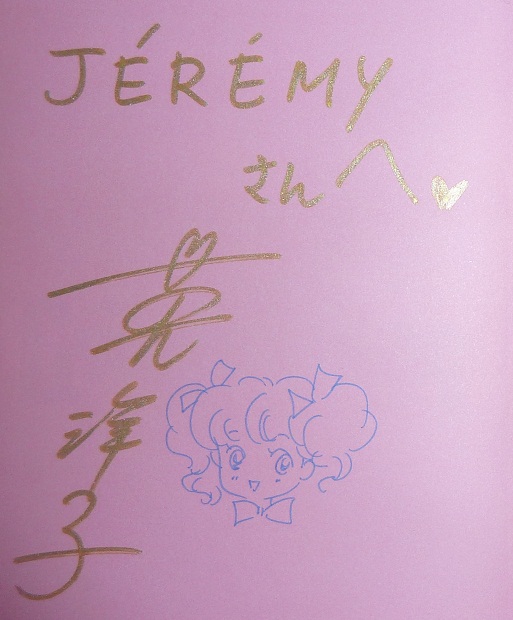 JÉRÉMY
さんへ♡
英洋子